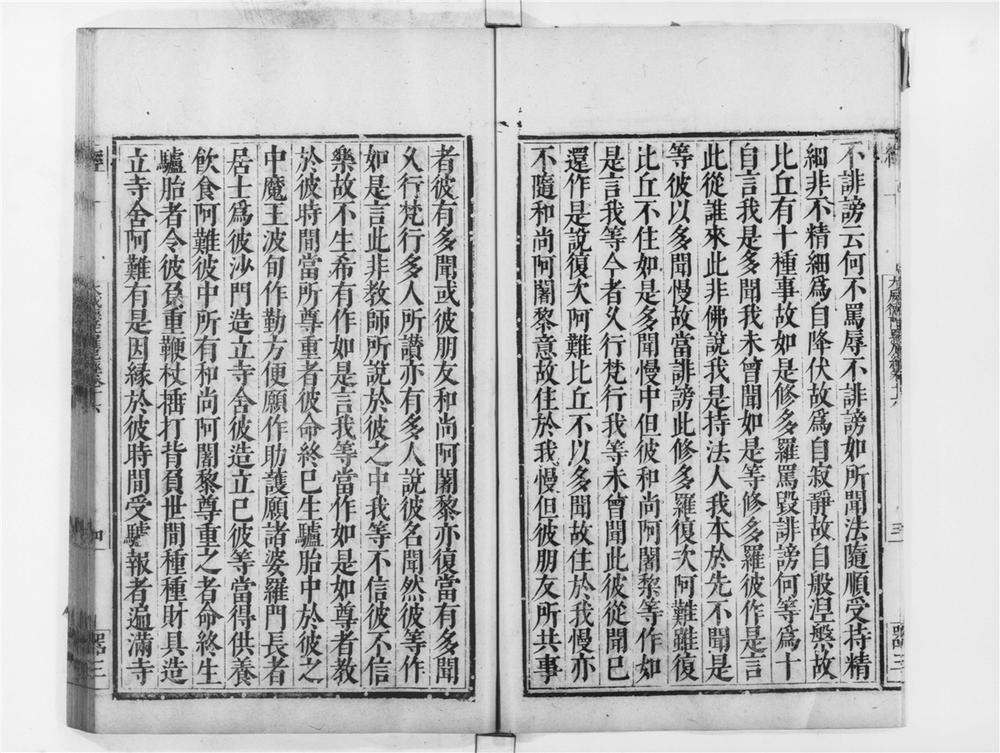 不誹謗云何不罵辱不誹謗如所聞法隨順受持精
細非不精細爲自降伏故爲自寂靜故自般涅槃故
比丘有十種事故如是修多羅罵毀誹謗何等爲十
自言我是多聞我未曾聞如是等修多羅彼作是言
此從誰來此非佛說我是持法人我本於先不聞是
等彼以多聞慢故當誹謗此修多羅復次阿難雖復
比丘不住如是多聞慢中但彼和尚阿闍黎等作如
是言我等今者久行梵行我等未曾聞此彼從聞已
還作是說復次阿難比丘不以多聞故住於我慢亦
不隨和尚阿闍黎意故住於我慢但彼朋友所共事
者彼有多聞或彼朋友和尚阿闍黎亦復當有多聞
久行梵行多人所讚亦有多人說彼名聞然彼等作
如是言此非教師所說於彼之中我等不信彼不信
樂故不生希有作如是言我等當作如是如尊者教
於彼時間當所尊重者彼命終已生驢胎中於彼之
中魔王波旬作勤方便願作助護願諸婆羅門長者
居士爲彼沙門造立寺舍彼造立已彼等當得供養
飲食阿難彼中所有和尚阿闍黎尊重之者命終生
驢胎者令彼負重鞭杖捶打背負世間種種財具造
立寺舍阿難有是因緣於彼時間受驢報者遍滿寺